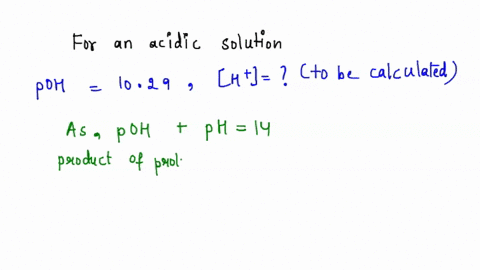 For an acidic solution
pOH = 10.29, [H⁺] = ? (to be calculated)
As, pOH + pH = 14
product of prot